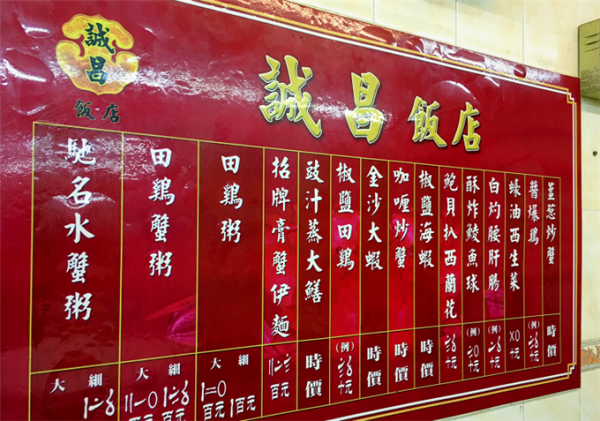 誠昌
飯店
誠昌飯店
薑葱炒蟹
時價
醬爆鷄
(例)
元
蠔油西生菜
元
白灼腰肝腸
(例)
十元
酥炸鯪魚球
(例)
十元
鮑貝扒西蘭花
十元
椒鹽海蝦
時價
咖喱炒蟹
時價
金沙大蝦
時價
椒鹽田鷄
(例)
十元
豉汁蒸大鱔
時價
招牌膏蟹伊麵
百元
田鷄粥
大 細
百元 百元
田鷄蟹粥
大 細
百元 百元
馳名水蟹粥
大 細